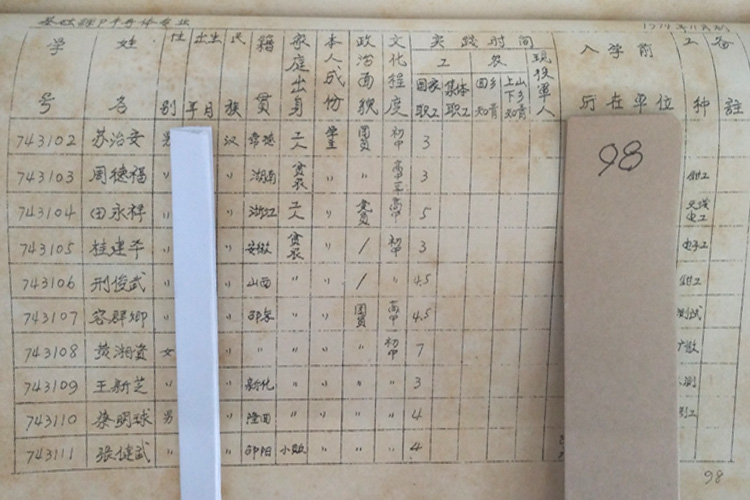 基础课 半导体专业
1974年
学号 姓名 性别 出生年月 民族 籍贯 家庭出身 本人成份 政治面貌 文化程度 实践时间 工 农 国家职工 集体职工 回乡知青 上山下乡知青 现役军人 入学前所在单位 工种 备註
743102 苏治安 男 汉 常德 工人 学生 团员 初中 3
743103 周德福 〃 〃 湖南 贫农 〃 〃 高中 3 钳工
743104 田永祥 〃 〃 浙江 工人 〃 党员 高中 5 无线电工
743105 桂建平 〃 〃 安徽 贫农 〃 / 初中 3 电子工
743106 刑俊武 〃 〃 山西 〃 〃 / 〃 4.5 钳工
743107 容群卿 〃 〃 邵东 〃 〃 团员 高中 4.5 测试
743108 黄湘贵 女 〃 〃 〃 〃 〃 初中 7 扩散
743109 王新芝 〃 〃 新化 〃 〃 〃 〃 3
743110 梁明球 男 〃 隆回 〃 〃 〃 〃 4
743111 张健武 〃 〃 邵阳 小贩 〃 〃 〃 4
98
98